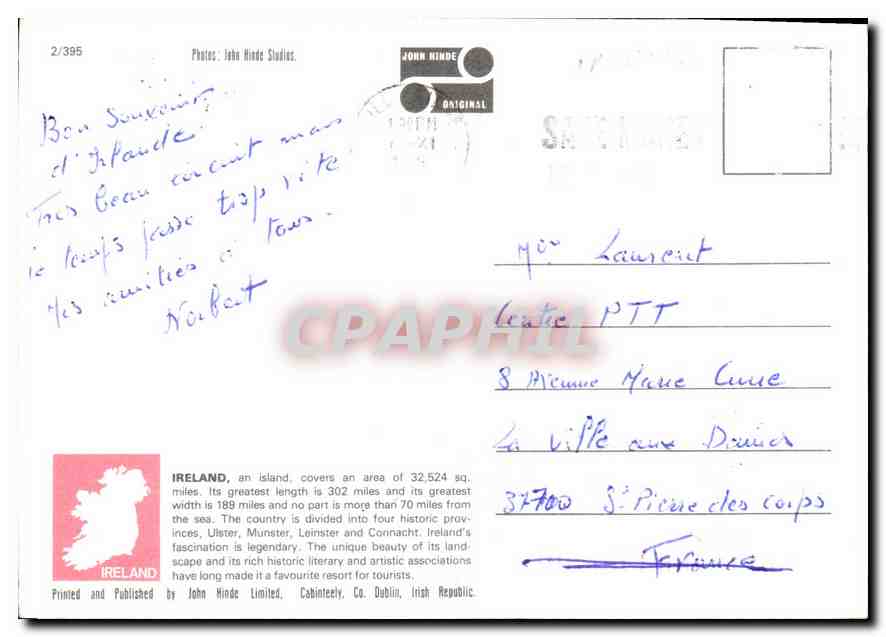 2/395
Photos: John Hinde Studios.
JOHN HINDE
ORIGINAL
Bon Souvenir
d'Irlande
Très beau circuit mais
le temps passe trop vite
Mes amitiés à tous.
Norbert
Mr Laurent
Centre PTT
8 Avenue Marie Curie
La Ville aux Dames
37700 St Pierre des corps
France
CPAPHIL
IRELAND, an island, covers an area of 32,524 sq.
miles. Its greatest length is 302 miles and its greatest
width is 189 miles and no part is more than 70 miles from
the sea. The country is divided into four historic prov-
inces, Ulster, Munster, Leinster and Connacht. Ireland's
fascination is legendary. The unique beauty of its land-
scape and its rich historic literary and artistic associations
have long made it a favourite resort for tourists.
IRELAND
Printed and Published by John Hinde Limited, Cabinteely, Co. Dublin, Irish Republic.